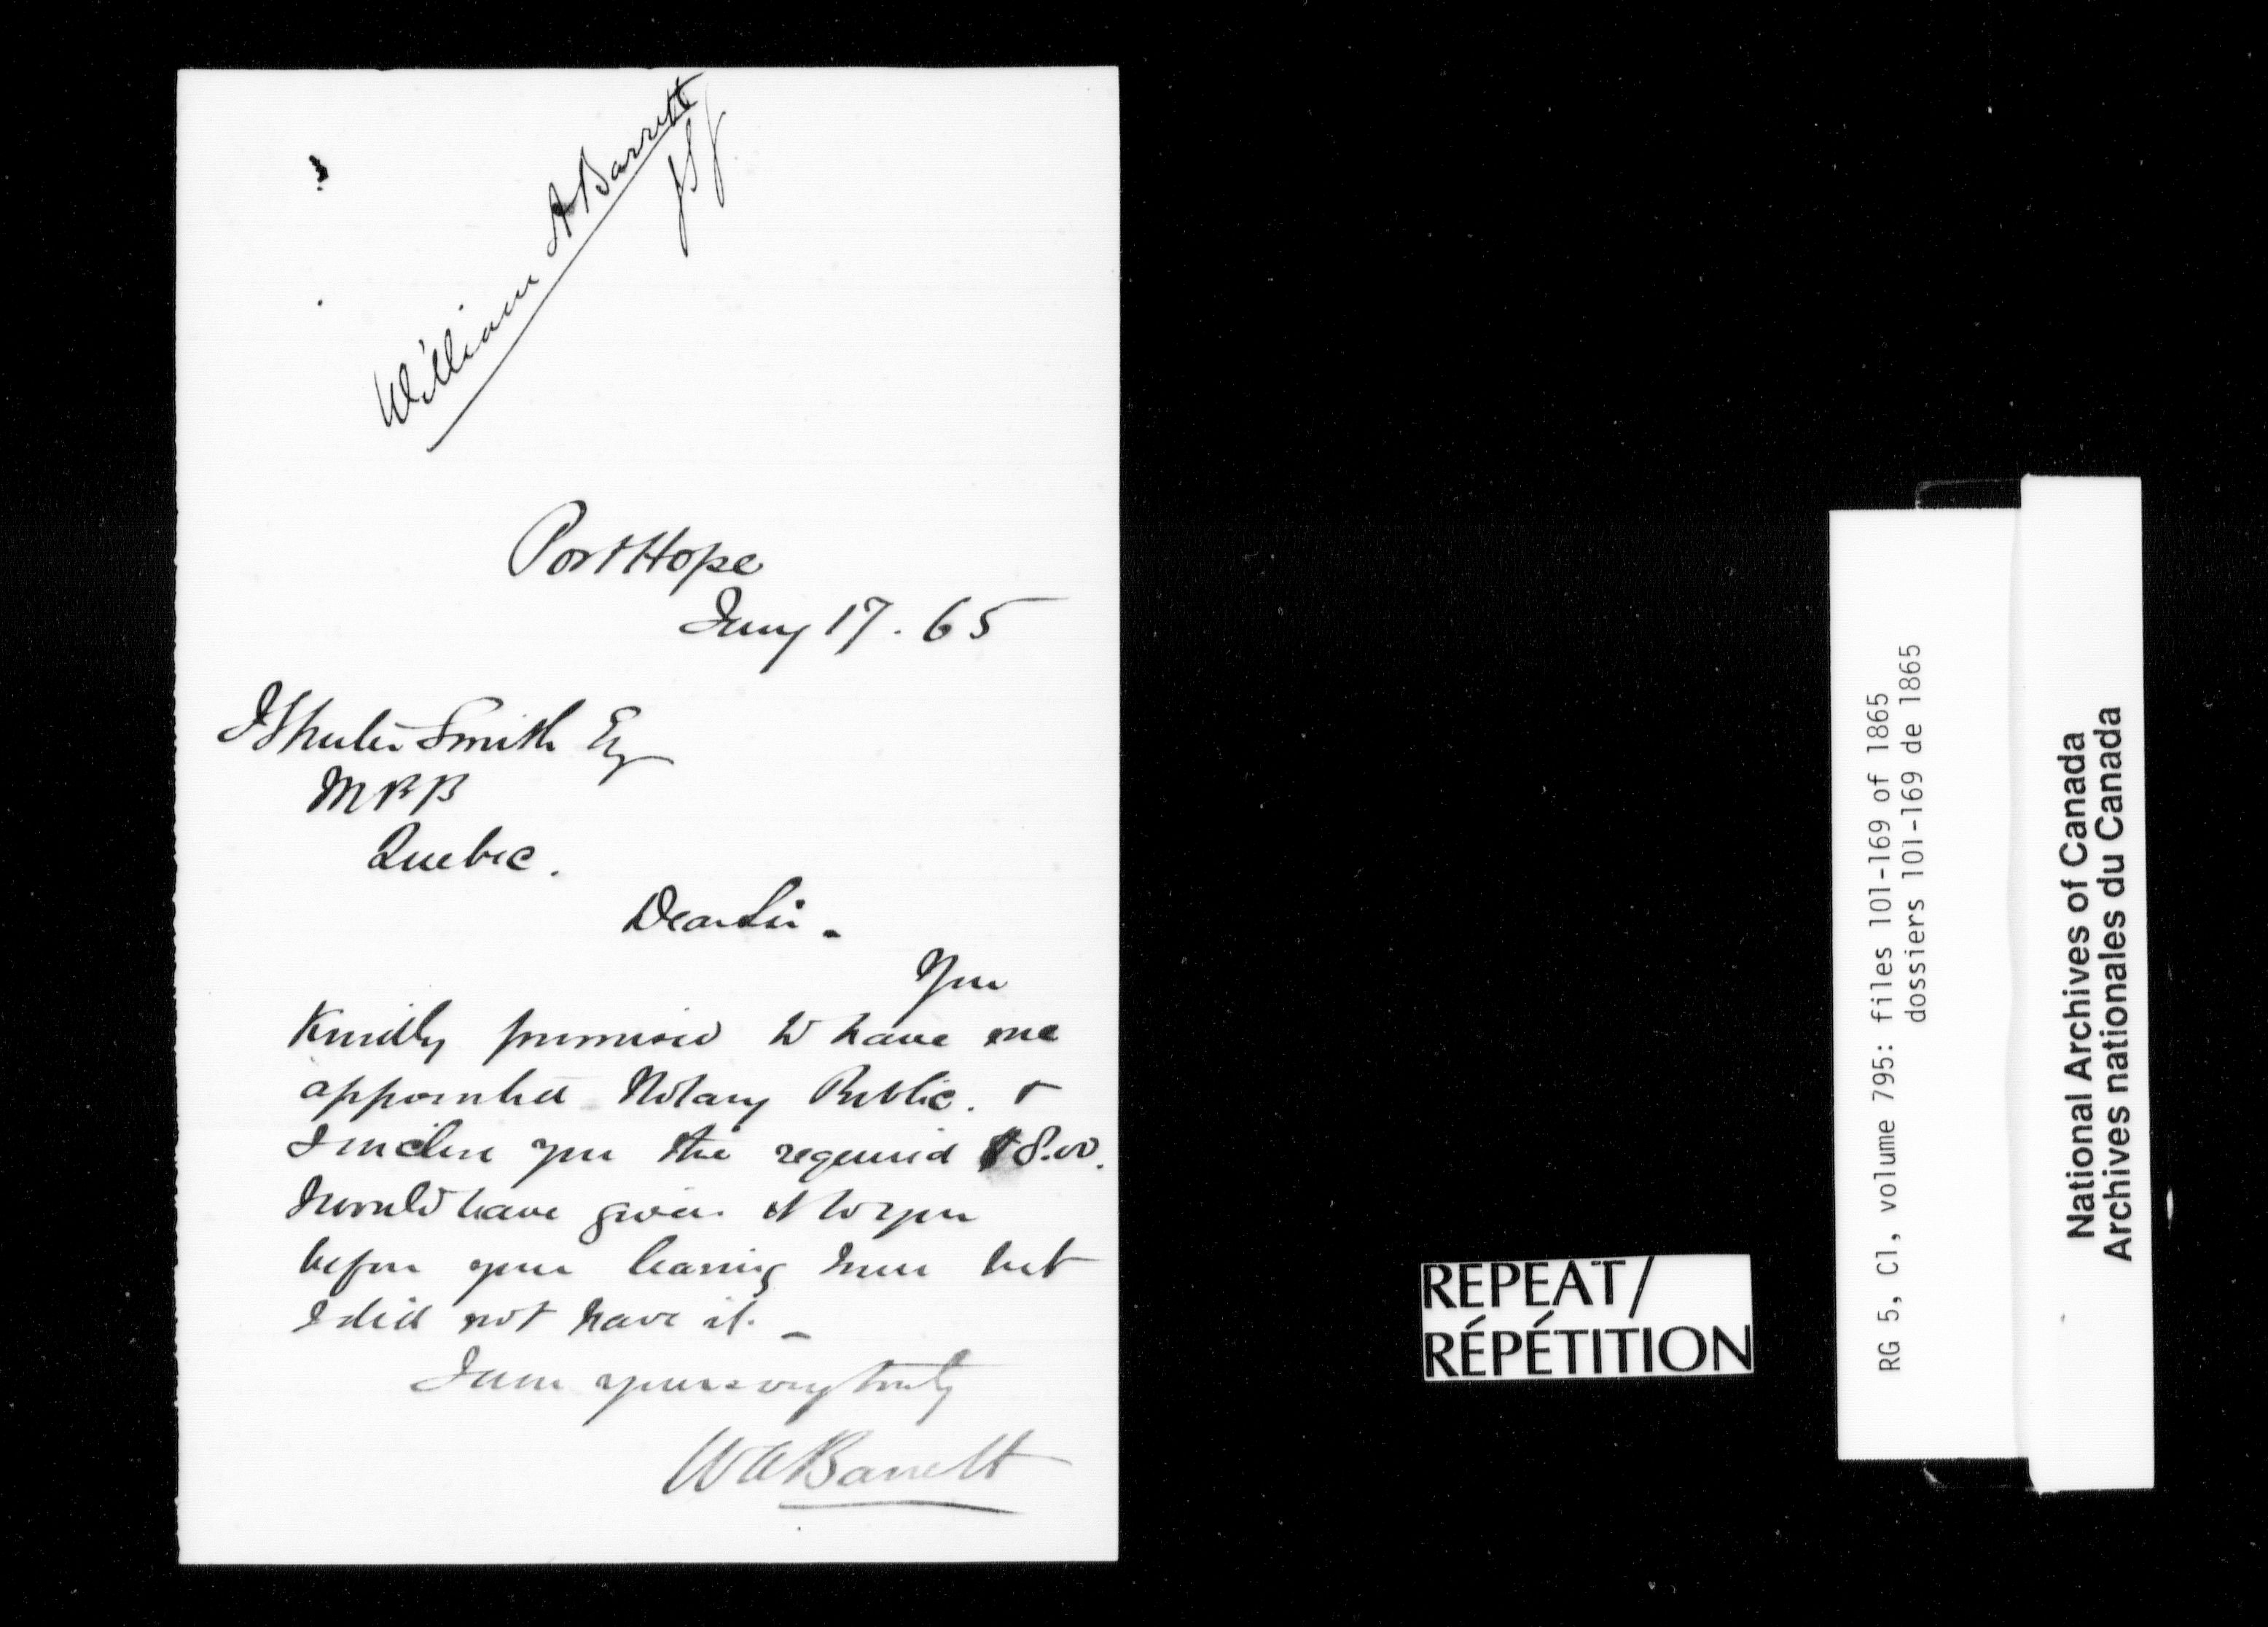 William A Barrett
Port Hope
Jany 17. 65
J Shuter Smith Esq
MPP
Quebec.
Dear Sir -
You
Kindly promised to have me
appointed Notary Public. &
I inclose you the required $8.00.
I would have given it to you
before your leaving but
I did not have it. -
I am yours very truly
W A Barrett
REPEAT/
RÉPÉTITION
RG 5, C1, volume 795: files 101-169 of 1865
dossiers 101-169 de 1865
National Archives of Canada
Archives nationales du Canada